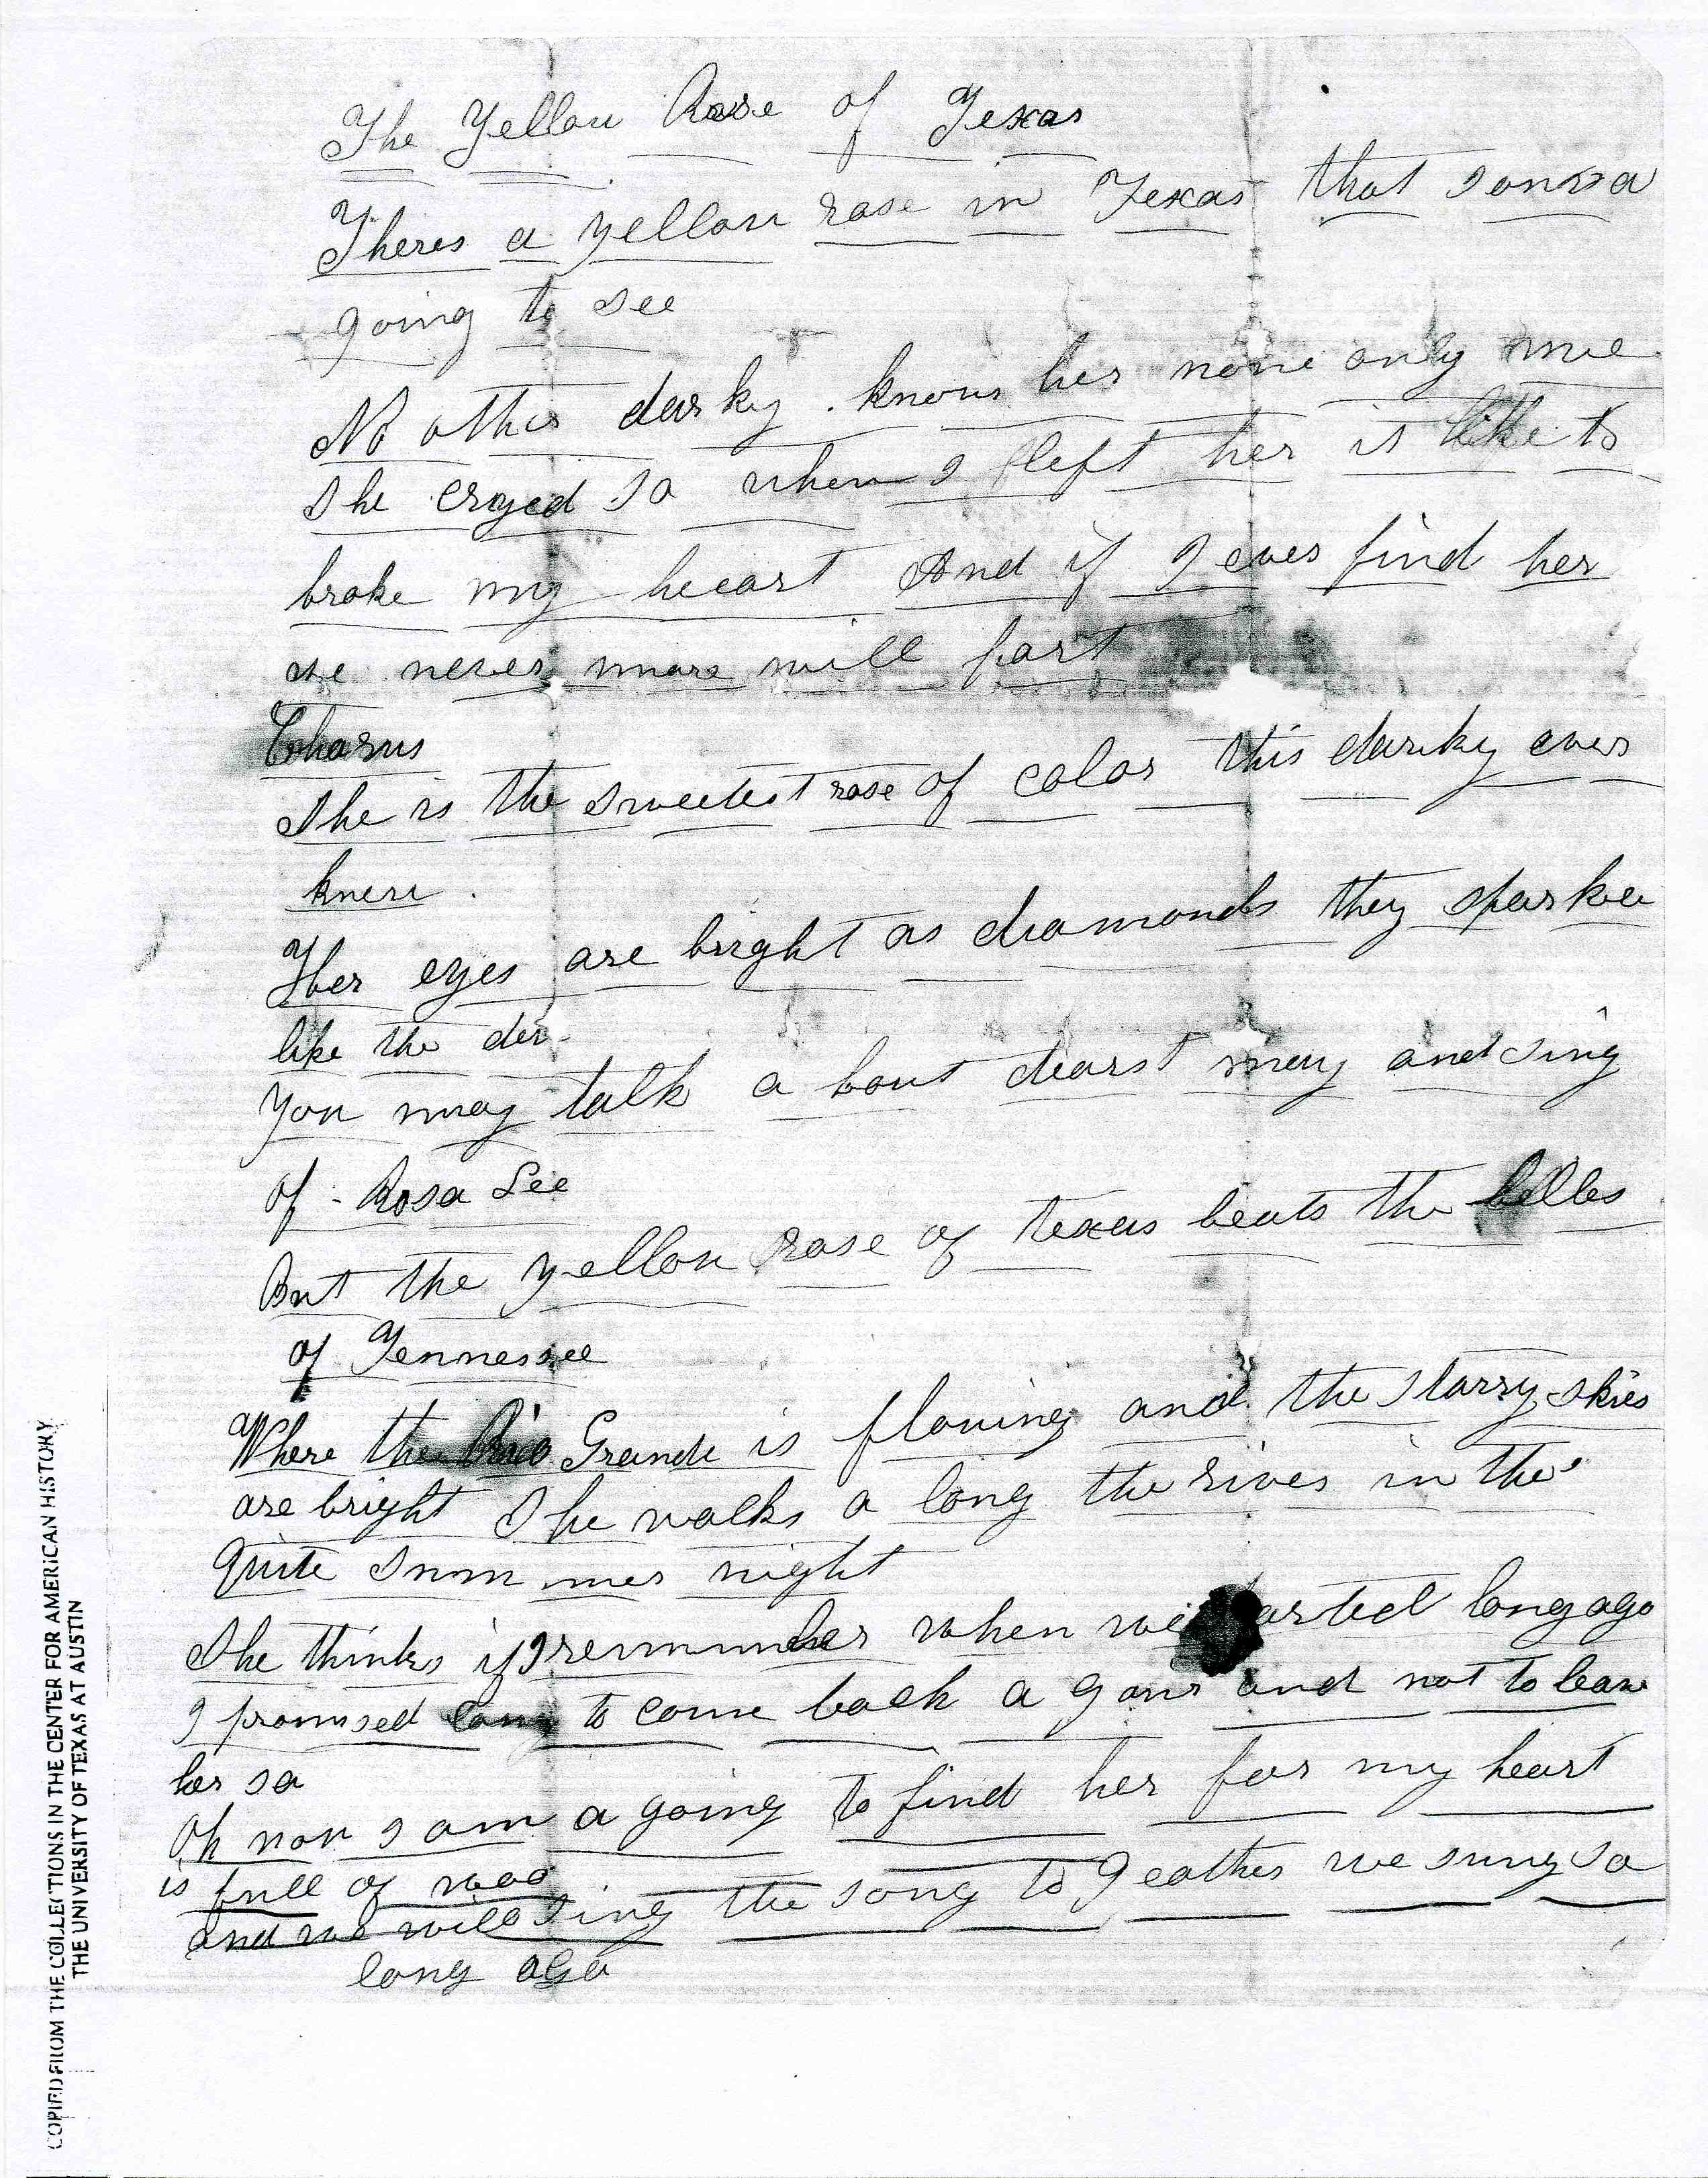 The Yellow Rose of Texas
Theres a yellow rose in Texas that I am a
going to see
No other darky knows her none only me
She cryed so when I left her it like to
broke my heart And if I ever find her
we never more will part
Chorus
She is the sweetest rose of color this darky ever
knew
Her eyes are bright as diamonds they sparkle
like the dew
You may talk a bout dearst may and sing
of Rosa Lee
But the yellow rose of texas beats the belles
of Tennessee
Where the Rio Grande is flowing and the starry skies
are bright She walks a long the river in the
Quite summer night
She thinks if I remember when we parted long ago
I promised to come back a gain and not to leave
her so
Oh now I am a going to find her for my heart
is full of woe
and we will sing the song to geather we sung so
long ago
COPIED FROM THE COLLECTIONS IN THE CENTER FOR AMERICAN HISTORY
THE UNIVERSITY OF TEXAS AT AUSTIN